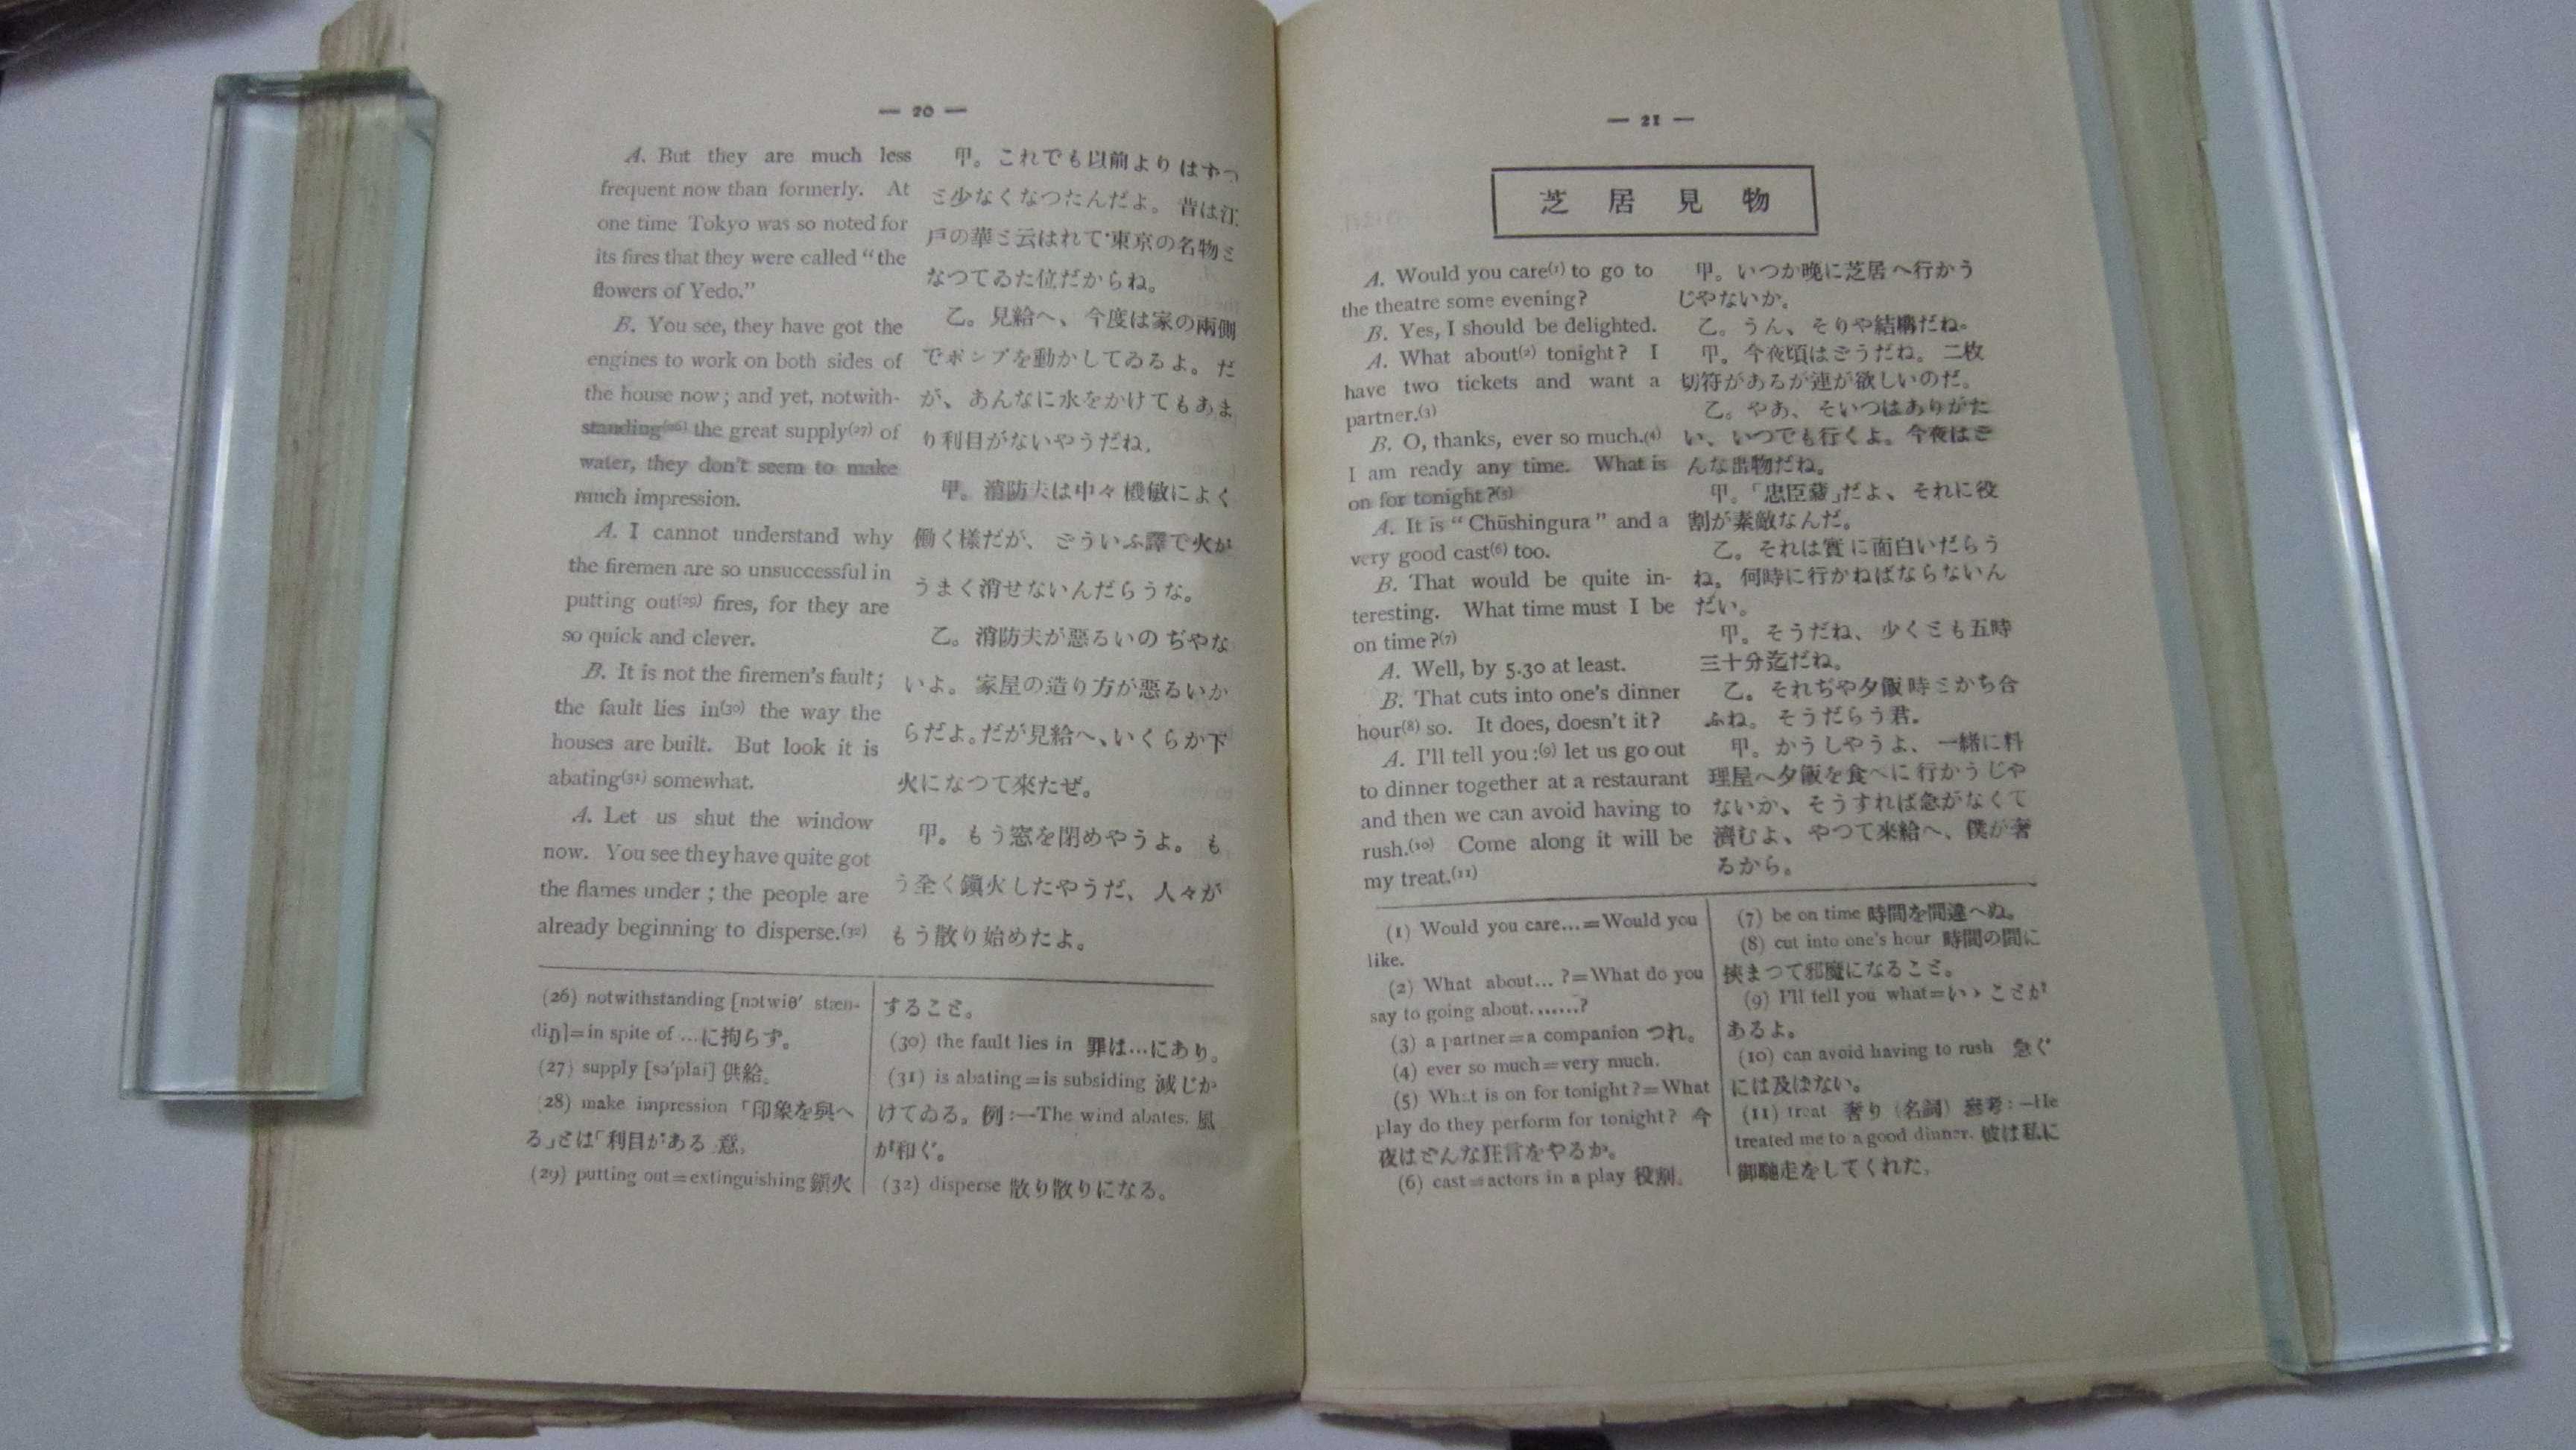 — 20 —
A. But they are much less
frequent now than formerly. At
one time Tokyo was so noted for
its fires that they were called “the
flowers of Yedo.”
B. You see, they have got the
engines to work on both sides of
the house now; and yet, notwith-
standing(26) the great supply(27) of
water, they don't seem to make
much impression.
A. I cannot understand why
the firemen are so unsuccessful in
putting out(29) fires, for they are
so quick and clever.
B. It is not the firemen's fault;
the fault lies in(30) the way the
houses are built. But look it is
abating(31) somewhat.
A. Let us shut the window
now. You see they have quite got
the flames under; the people are
already beginning to disperse.(32)
甲。これでも以前よりはずつ
と少なくなつたんだよ。昔は江
戸の華と云はれて東京の名物と
なつてゐた位だからね。
乙。見給へ、今度は家の兩側
でポンプを動かしてゐるよ。だ
が、あんなに水をかけてもあま
り利目がないやうだね。
甲。消防夫は中々機敏によく
働く樣だが、どういふ譯で火が
うまく消せないんだらうな。
乙。消防夫が惡るいのぢやな
いよ。家屋の造り方が惡るいか
らだよ。だが見給へ、いくらか下
火になつて來たぜ。
甲。もう窓を閉めやうよ。も
う全く鎭火したやうだ、人々が
もう散り始めたよ。
(26) notwithstanding [nɔtwiθ' stæn-
diŋ]=in spite of ...に拘らず。
(27) supply [sə'plai] 供給。
(28) make impression 「印象を與へ
る」とは「利目がある 意。
(29) putting out=extinguishing 鎭火
すること。
(30) the fault lies in 罪は...にあり。
(31) is abating=is subsiding 減じか
けてゐる。例:—The wind abates. 風
が和ぐ。
(32) disperse 散り散りになる。
— 21 —
芝居見物
A. Would you care(1) to go to
the theatre some evening?
B. Yes, I should be delighted.
A. What about(2) tonight? I
have two tickets and want a
partner.(3)
B. O, thanks, ever so much.(4)
I am ready any time. What is
on for tonight?(5)
A. It is “Chūshingura” and a
very good cast(6) too.
B. That would be quite in-
teresting. What time must I be
on time?(7)
A. Well, by 5.30 at least.
B. That cuts into one's dinner
hour(8) so. It does, doesn't it?
A. I'll tell you:(9) let us go out
to dinner together at a restaurant
and then we can avoid having to
rush.(10) Come along it will be
my treat.(11)
甲。いつか晩に芝居へ行かう
じやないか。
乙。うん、そりや結構だね。
甲。今夜頃はどうだね。二枚
切符があるが連が欲しいのだ。
乙。やあ、そいつはありがた
い、いつでも行くよ。今夜はど
んな出物だね。
甲。「忠臣藏」だよ、それに役
割が素敵なんだ。
乙。それは實に面白いだらう
ね。何時に行かねばならないん
だい。
甲。そうだね、少くとも五時
三十分迄だね。
乙。それぢや夕飯時とかち合
ふね。そうだらう君。
甲。かうしやうよ、一緒に料
理屋へ夕飯を食べに行かうじや
ないか、そうすれば急がなくて
濟むよ、やつて來給へ、僕が奢
るから。
(1) Would you care...=Would you
like.
(2) What about... ?=What do you
say to going about.......?
(3) a partner=a companion つれ。
(4) ever so much=very much.
(5) What is on for tonight?=What
play do they perform for tonight? 今
夜はどんな狂言をやるか。
(6) cast=actors in a play 役割。
(7) be on time 時間を間違へぬ。
(8) cut into one's hour 時間の間に
挾まつて邪魔になること。
(9) I'll tell you what=いゝことが
あるよ。
(10) can avoid having to rush 急ぐ
には及ばない。
(11) treat 奢り (名詞) 參考:—He
treated me to a good dinner. 彼は私に
御馳走をしてくれた。